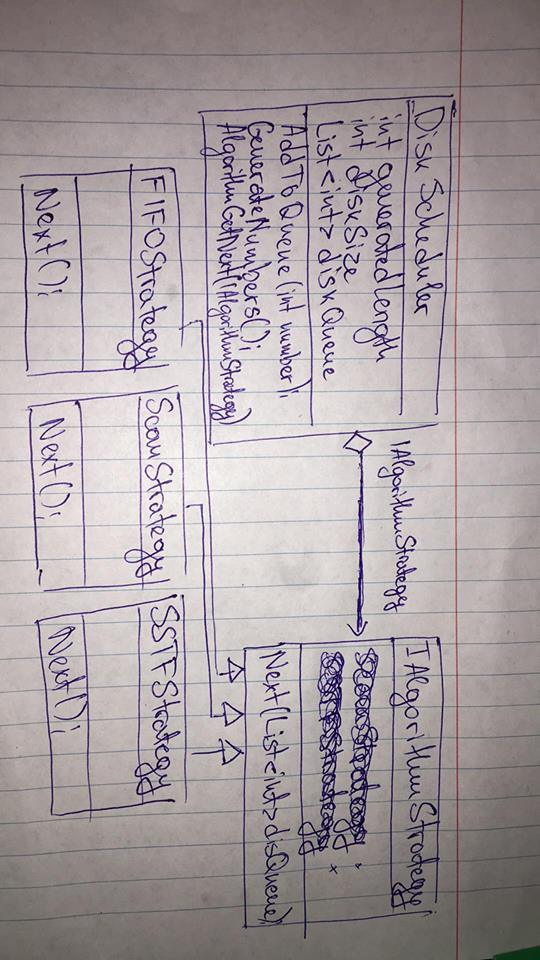 Disk Scheduler
int generatedLength
int diskSize
List<int> diskQueue
AddToQueue(int number);
GenerateNumbers();
AlgorithmGetNext(IAlgorithmStrategy)
IAlgorithmStrategy
IAlgorithmStrategy
Next(List<int> disQueue);
FIFOStrategy
Next();
ScanStrategy
Next();
SSTFStrategy
Next();